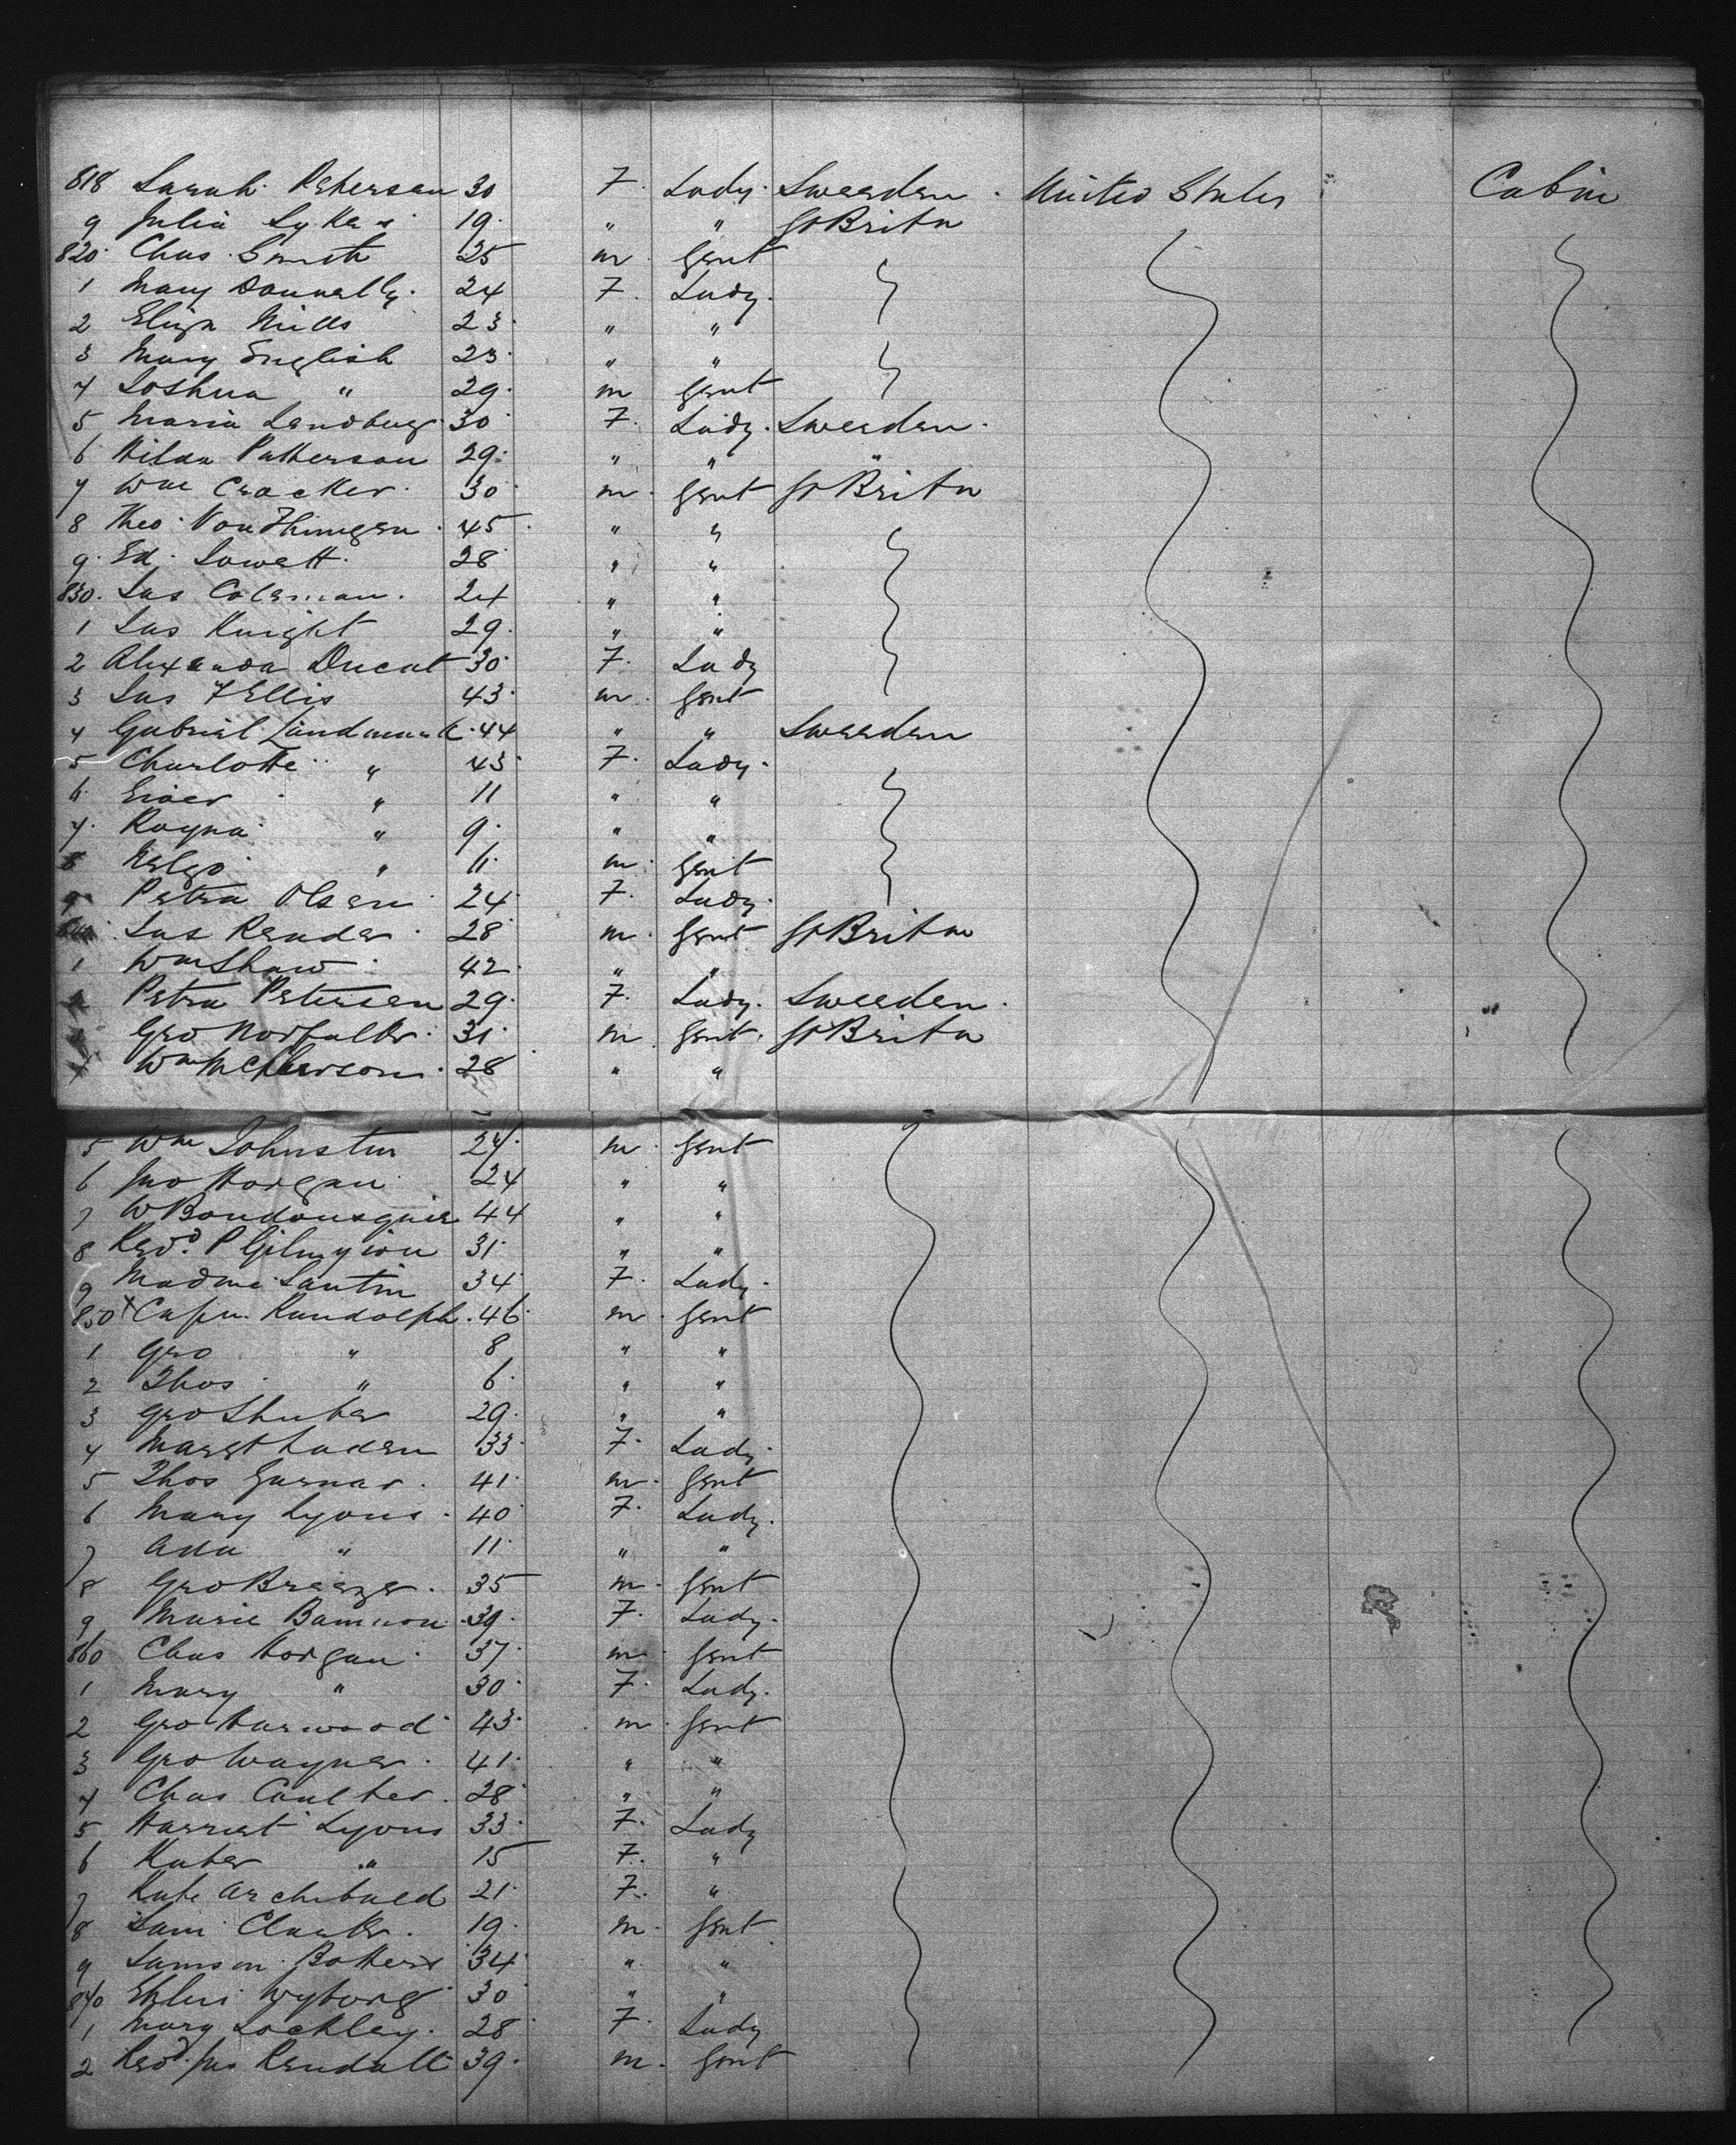 818 Sarah Petersen 30 F. Lady. Sweeden. United States Cabin
9 Julia Sykes 19. " " Gt Britn
820 Chas Smith 25 m Gent
1 Mary Donnelly. 24 F. Lady.
2 Eliza Mills 23. " "
3 Mary English 23. " "
4 Joshua " 29. m Gent
5 Maria Landberg. 30 F. Lady. Sweeden.
6 Hilda Patterson 29. " " "
7 Wm Cracker. 30 m. Gent Gt Britn
8 Theo. Von 45 " "
9. Ed. Lowett. 28 " "
830. Jas Coleman. 24 " "
1 Jas Knight 29. " "
2 Alexanda Ducat 30. F. Lady
3 Jas F Ellis 43. m. Gent
4 Gabriel Landmark. 44 " " Sweeden
5 Charlotte " 43. F. Lady.
6. " 11 " "
7. Ragna " 9. " "
8 Helgo " m. Gent
9 Petra Olsen 24. F. Lady.
Jas Render. 28 m. Gent Gt Britn
1 Wm Shaw 42. " "
Petra Petersen 29. F. Lady. Sweeden.
Geo Norfolk. 31. m. Gent. Gt Britn
Wm McPherson. 28 " "
5 Wm Johnston 24. m. Gent
6 Jno Horgan 24 " "
7 W Boudousquie 44 " "
8 Revd. P 31. " "
9 Madme Santin 34 F. Lady.
850 x Capn. Randolph. 46. m. Gent
1 Geo " 8 " "
2 Thos " 6. " "
3 Geo Shuter 29. " "
4 Margt Laden 33. F. Lady.
5 Thos Gurnar. 41. m. Gent
6 Mary Lyons. 40 F. Lady.
7 Ada " 11. " "
8 Geo Breeze. 35 m. Gent
9 Marie 39. F. Lady.
860 Chas Horgan. 37 m. Gent
1 Mary " 30. F. Lady.
2 Geo Harwood 43. m. Gent
3 Geo Wayner. 41. " "
4 Chas Coulter. 28. " "
5 Harriet Lyons 33. F. Lady
6 " 15 F. "
7 Kate Archibald 21. F. "
8 Sam Clarke. 19. m. Gent
9 Samson 34 " "
870 Wyborg 30 " "
1 Mary Lockley. 28 F. Lady
2 Revd. Jno Kendall 39. m. Gent